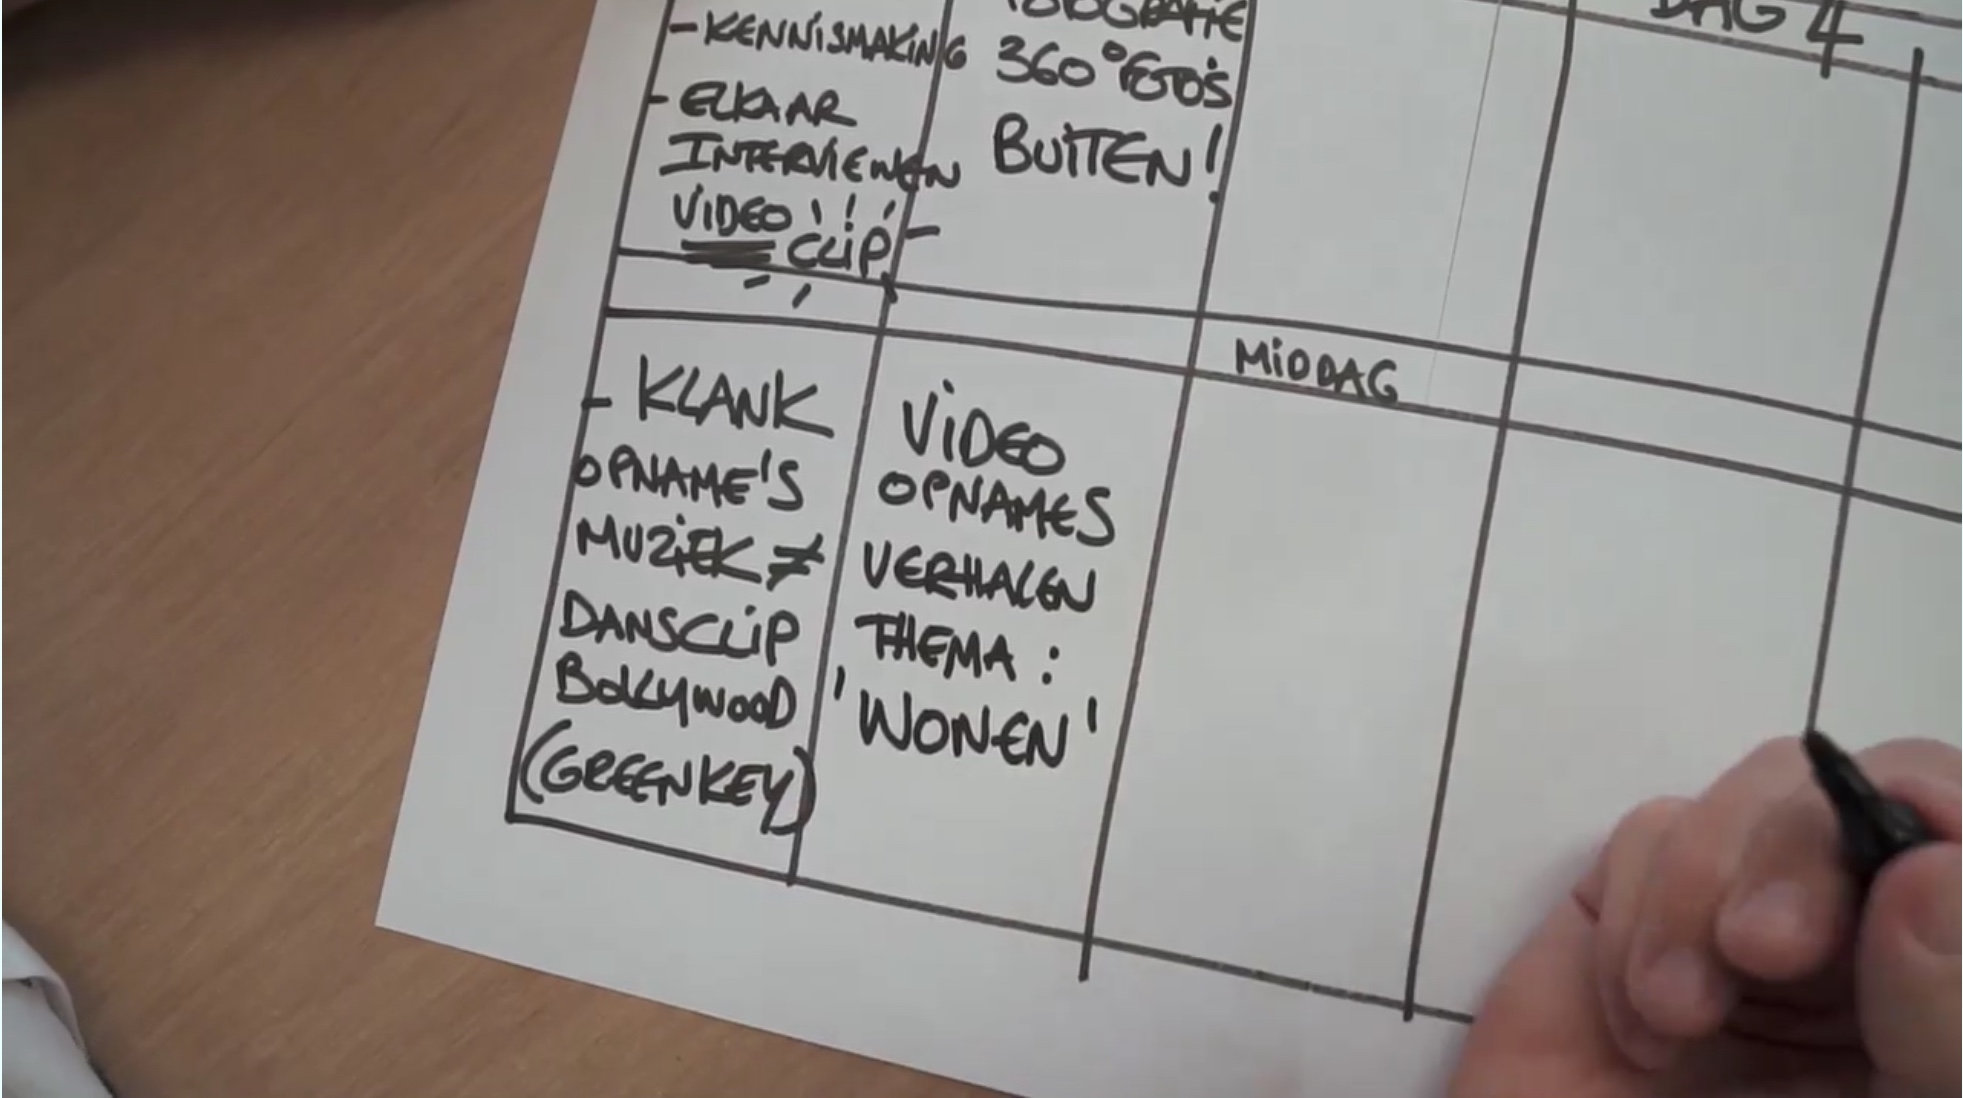 DAG 4
- KENNISMAKING
- ELKAAR
INTERVIEWEN
VIDEO !!!
CLIP -
FOTOGRAFIE
360° FOTO'S
BUITEN!
MIDDAG
- KLANK
OPNAME'S
MUZIEK ≠
DANSCLIP
BOLLYWOOD
(GREENKEY)
VIDEO
OPNAMES
VERHALEN
THEMA :
'WONEN'